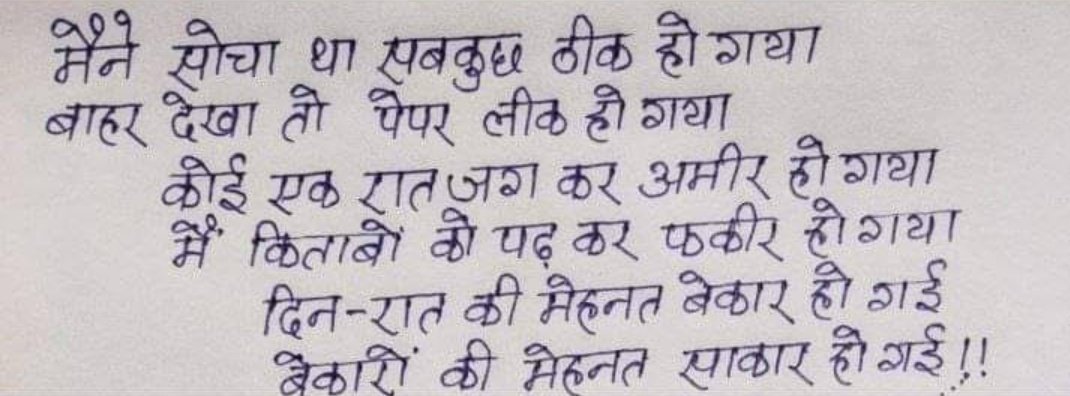 मैने सोचा था सबकुछ ठीक हो गया
बाहर देखा तो पेपर लीक हो गया
कोई एक रात जग कर अमीर हो गया
मैं किताबों को पढ़ कर फकीर हो गया
दिन-रात की मेहनत बेकार हो गई
बेकारों की मेहनत साकार हो गई!!